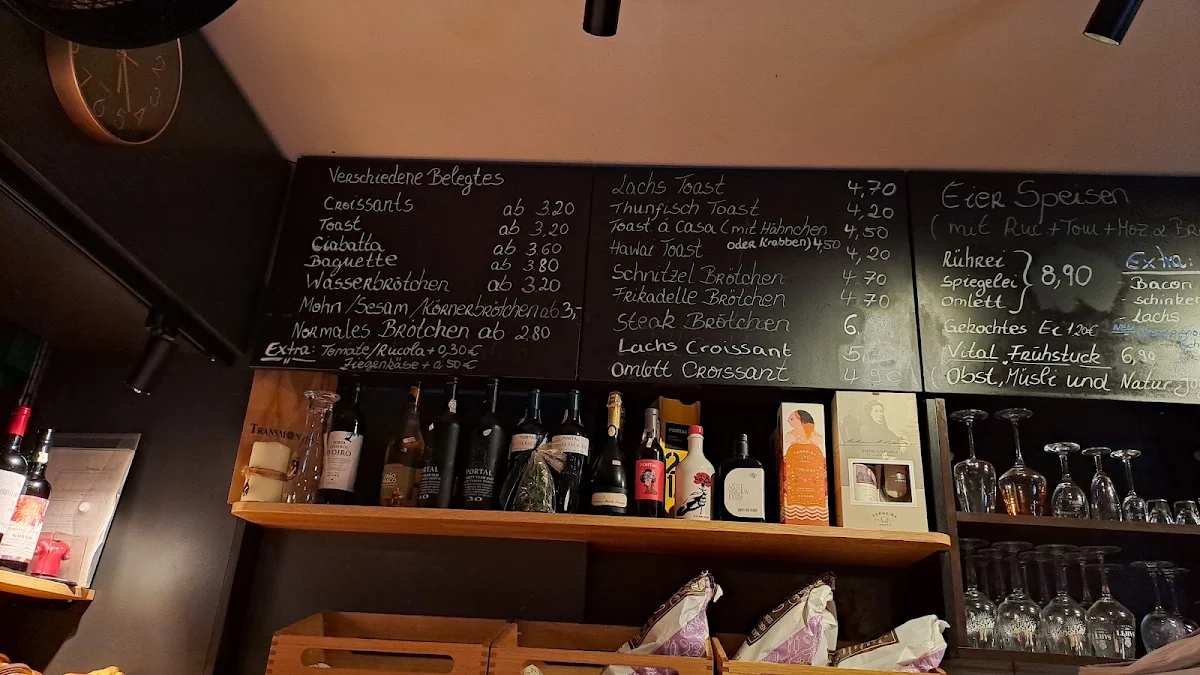 Verschiedene Belegtes
Croissants ab 3.20
Toast ab 3,20
Ciabatta ab 3.60
Baguette ab 3.80
Wasserbrötchen ab 3.20
Mohn/Sesam/Körnerbrötchen ab 3,-
Normales Brötchen ab 2.80
Extra: Tomate/Rucola + 0,30 €
Ziegenkäse + 0,50 €
Lachs Toast 4,70
Thunfisch Toast 4,20
Toast á Casa (mit Hähnchen 4,50
oder Krabben) 4,50
Hawai Toast 4,20
Schnitzel Brötchen 4.70
Frikadelle Brötchen 4.70
Steak Brötchen 6.
Lachs Croissant 5,
Omlett Croissant 4.90
Eier Speisen
(mit Ruc + Tom + Moz
Rührei
Spiegelei
Omlett
8,90
Gekochtes Ei 1.20€
Vital Frühstuck 6,90
(Obst, Müsli und Natur
Extra:
- Bacon
- schinken
- Lachs
NEU
TRANSMON
PORTAL
30
PORTAL
PORTAL
PORTAL